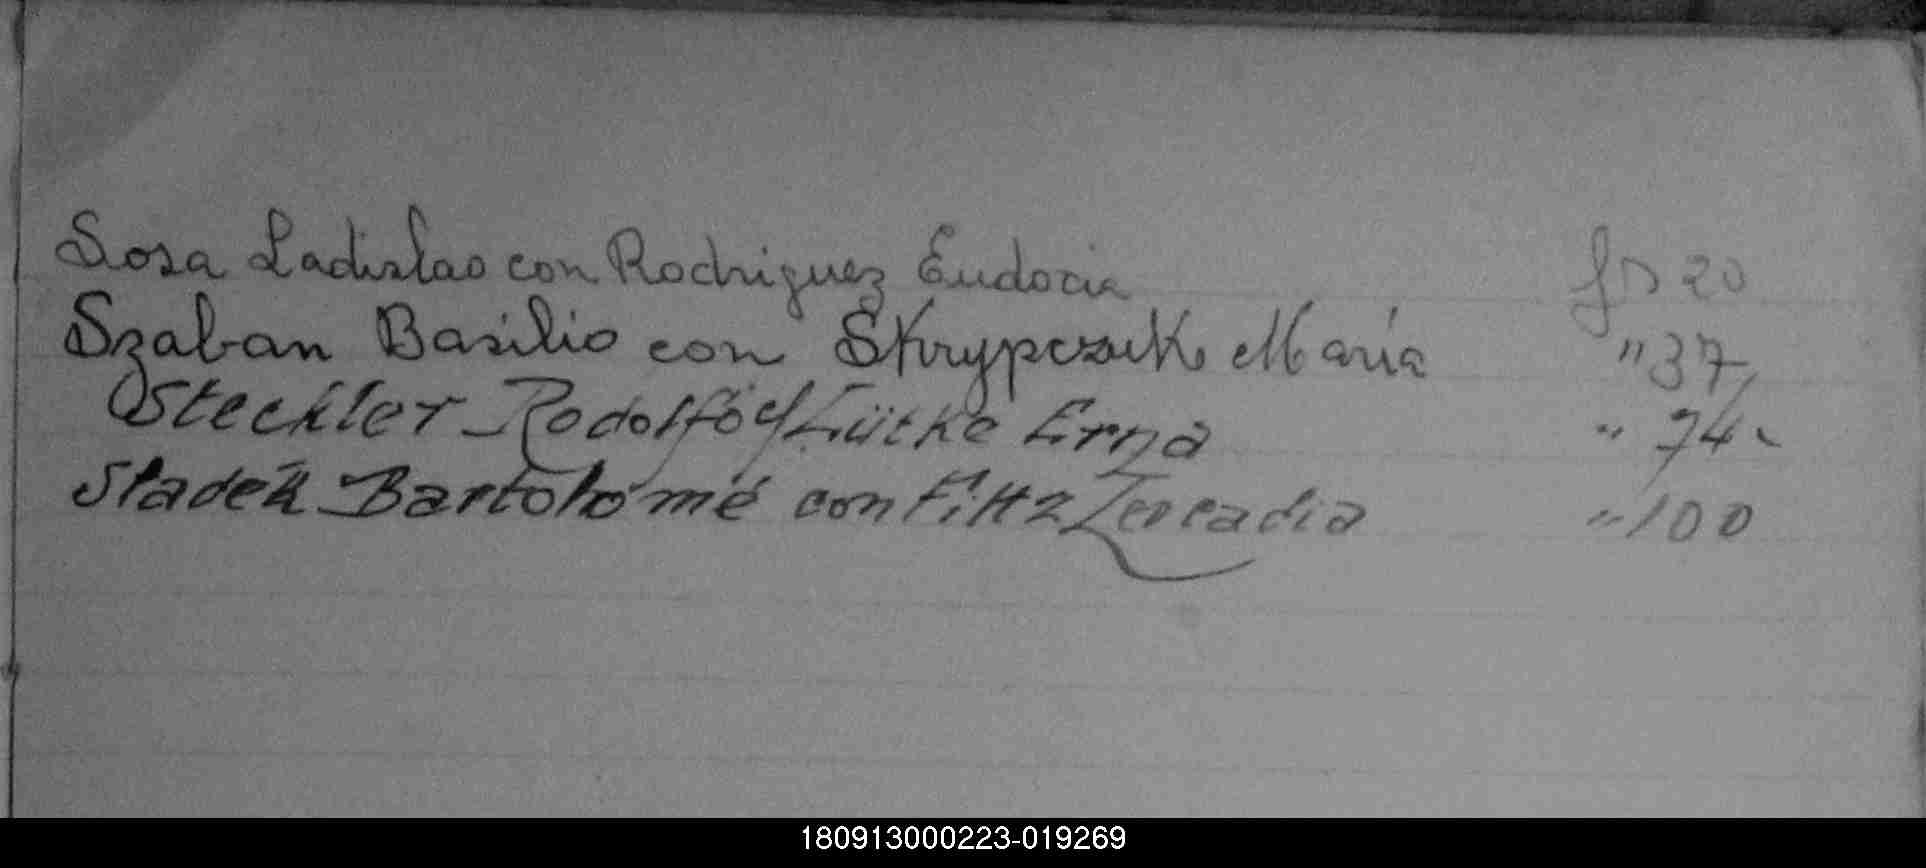 Sosa Ladislao con Rodriguez Eudocia fs 20
Szaban Basilio con Skrypczuk María " 37,
Steckler Rodolfo y Lütke Erna " 74
Sladék Bartolomé con Fittz Leocadia " 100
180913000223-019269